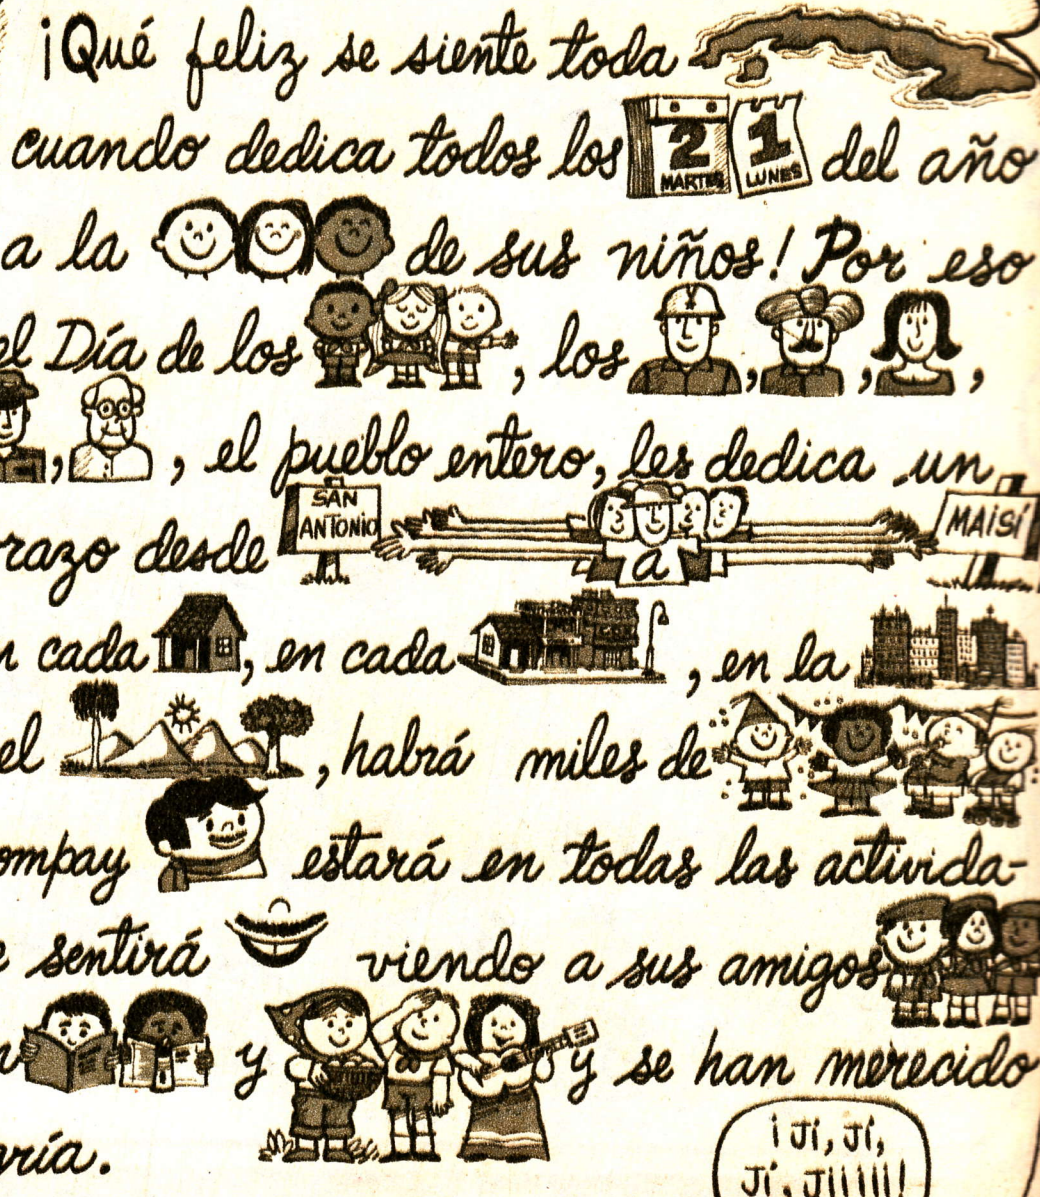 ¡Qué feliz se siente toda
cuando dedica todos los 2 MARTES 1 LUNES del año
a la de sus niños! Por eso
el Día de los , los , , ,
, , el pueblo entero, les dedica un
razo desde SAN ANTONIO a MAISÍ
cada , en cada , en la
el , habrá miles de
ompay estará en todas las activida-
e sentirá viendo a sus amigos
y y se han merecido
ría.
¡JÍ, JÍ,
JÍ, JÍÍÍÍÍ!